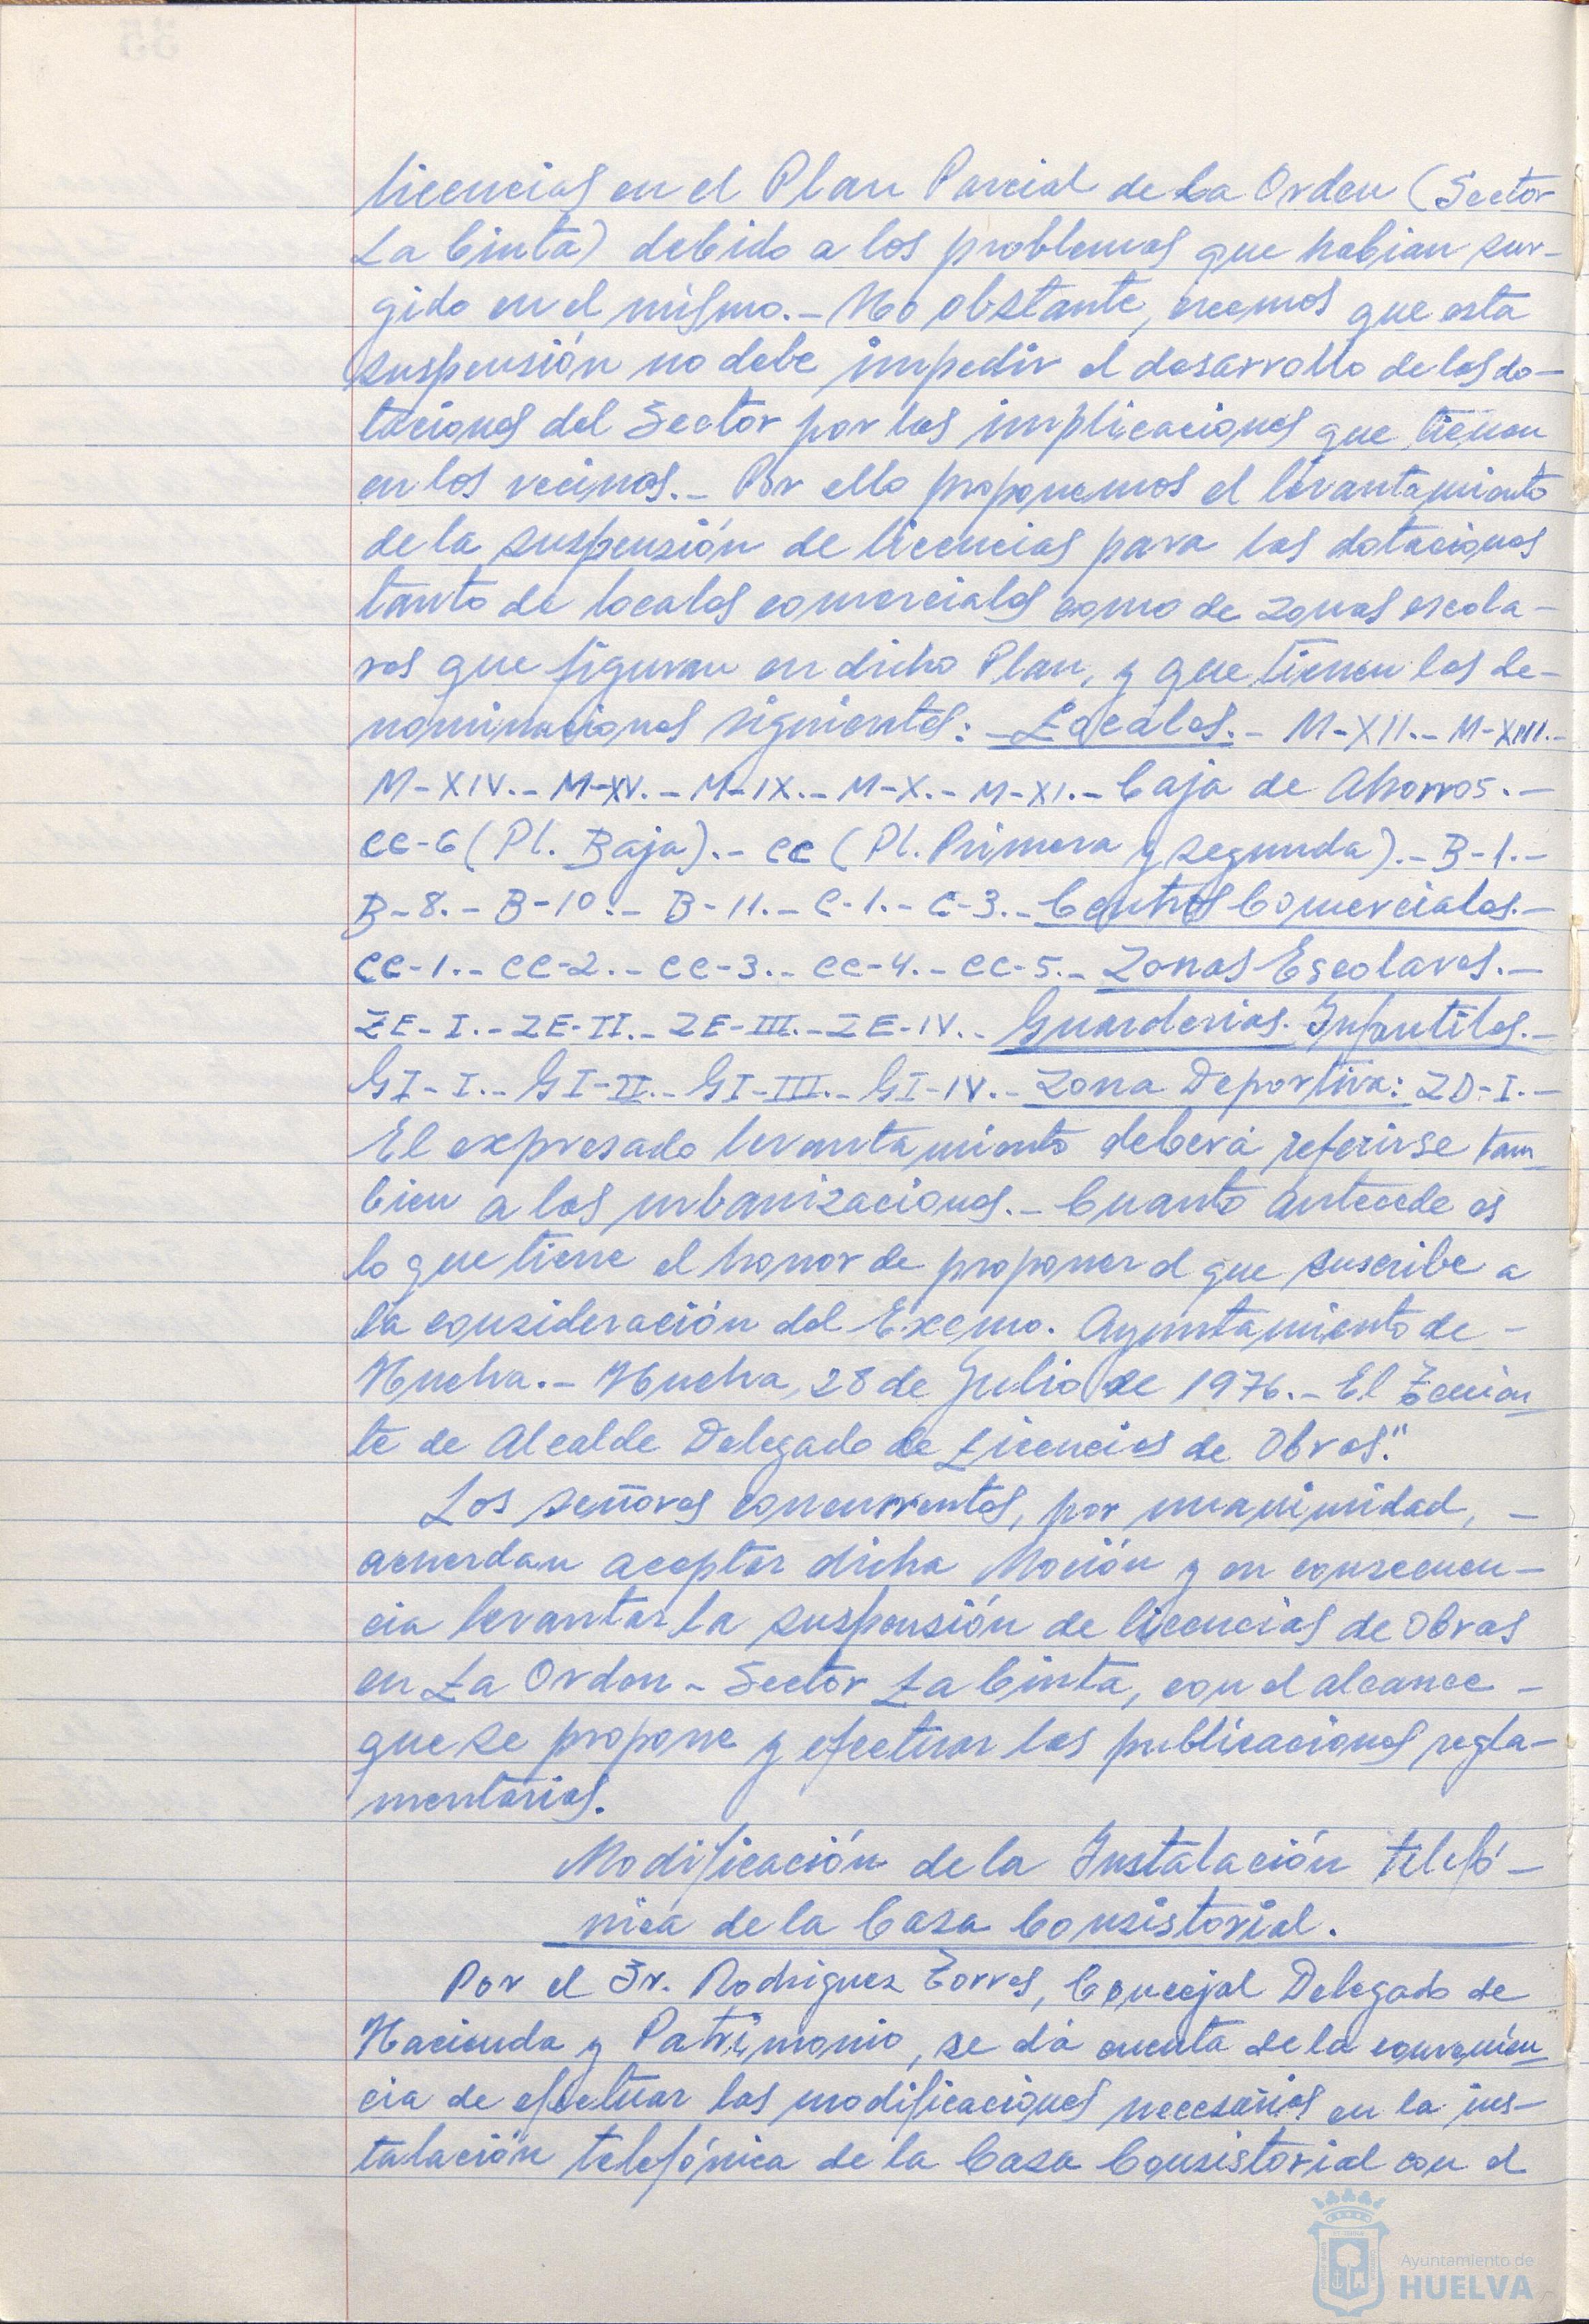 licencias en el Plan Parcial de La Orden (Sector
La Cinta) debido a los problemas que habian sur-
gido en el mismo.- No obstante, creemos que esta
suspensión no debe impedir el desarrollo de las do-
taciones del Sector por las implicaciones que tienen
en los vecinos.- Por ello proponemos el levantamiento
de la suspensión de licencias para las dotaciones
tanto de locales comerciales como de zonas escola-
res que figuran en dicho Plan, y que tienen las de-
nominaciones siguientes: - Locales.- M-XII.- M-XIII.-
M-XIV.- M-XV.- M-IX.- M-X.- M-XI.- Caja de Ahorros.-
CC-6 (Pl. Baja).- CC (Pl. Primera y segunda).- B-1.-
B-8.- B-10.- B-11.- C-1.- C-3.- Centros Comerciales.-
CC-1.- CC-2.- CC-3.- CC-4.- CC-5.- Zonas Escolares.-
ZE-I.- ZE-II.- ZE-III.- ZE-IV.- Guarderias Infantiles.-
GI-I.- GI-II.- GI-III.- GI-IV.- Zona Deportiva: ZD-I.-
El expresado levantamiento deberá referirse tam
bien a las urbanizaciones.- Cuanto antecede es
lo que tiene el honor de proponer el que suscribe a
la consideración del Excmo. Ayuntamiento de -
Huelva.- Huelva, 28 de Julio de 1976.- El Tenien
te de Alcalde Delegado de Licencias de Obras."
Los señores concurrentes, por unanimidad, -
acuerdan aceptar dicha Moción y en consecuen-
cia levantar la suspensión de licencias de Obras
en La Orden - Sector La Cinta, con el alcance -
que se propone y efectuar las publicaciones regla-
mentarias.
Modificación de la Instalación telefó-
nica de la Casa Consistorial.
Por el Sr. Rodriguez Torres, Concejal Delegado de
Hacienda y Patrimonio, se dá cuenta de la convenien
cia de efectuar las modificaciones necesarias en la ins-
talación telefónica de la Casa Consistorial con el
Ayuntamiento de
HUELVA